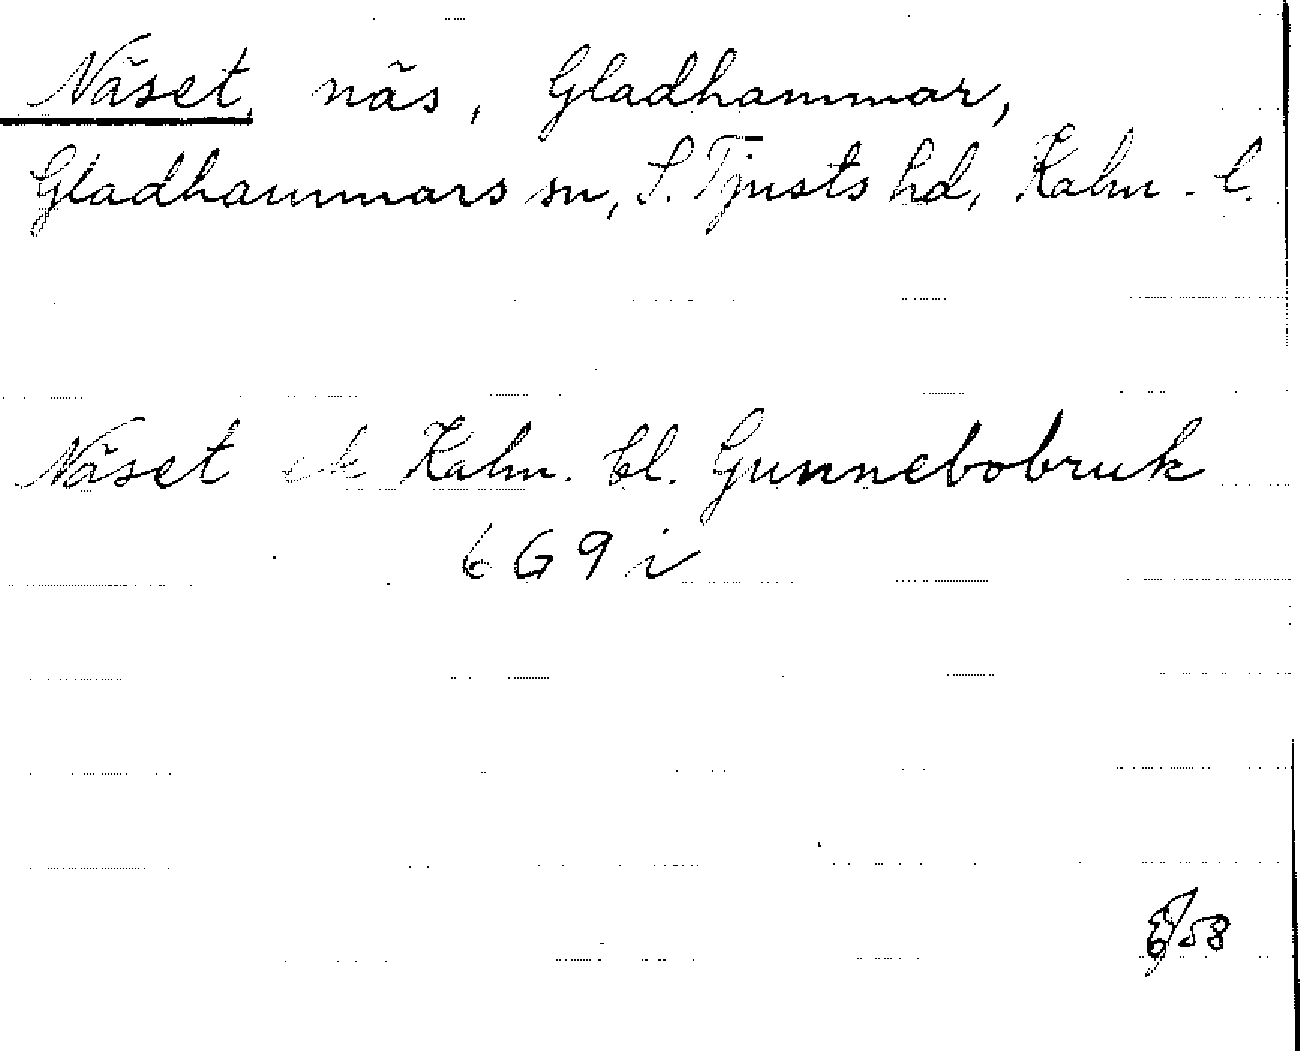 Näset, näs, Gladhammar,
Gladhammars sn, S. Tjusts hd, Kalm. l.
Näset ek Kalm. bl. Gunnebobruk
6 G 9 i
/58